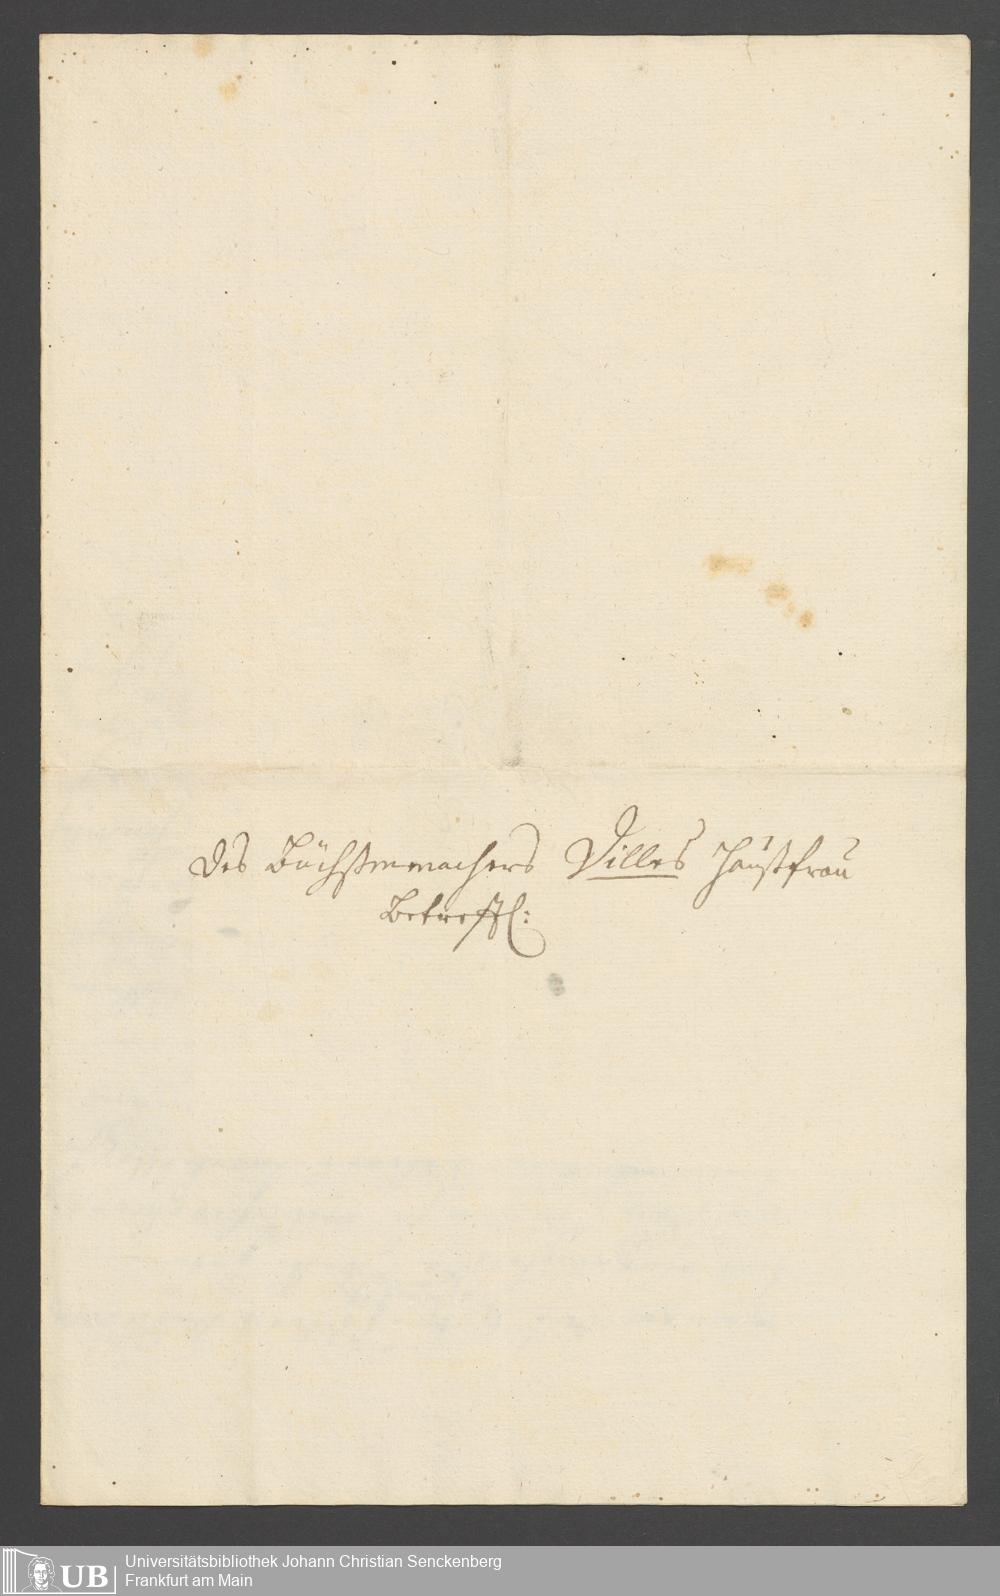 des Büchssenmachers Dilles Haussfrau
Betreffl:
Universitätsbibliothek Johann Christian Senckenberg
Frankfurt am Main
UB